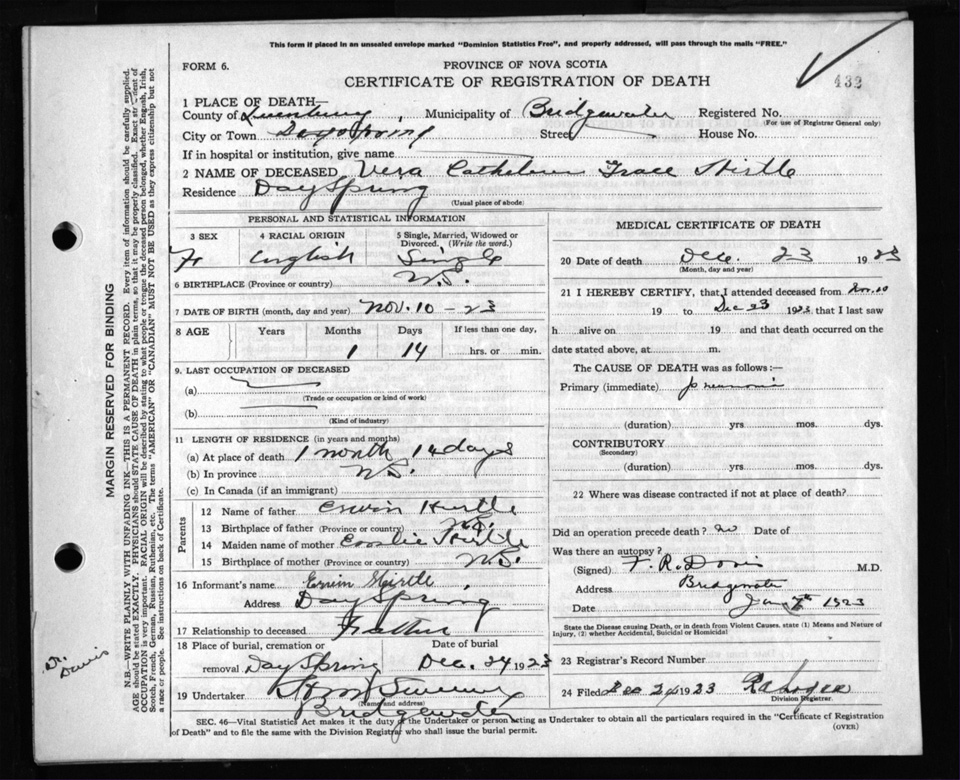 This form if placed in an unsealed envelope marked "Dominion Statistics Free", and properly addressed, will pass through the mails "FREE."
FORM 6.
PROVINCE OF NOVA SCOTIA
CERTIFICATE OF REGISTRATION OF DEATH
432
1 PLACE OF DEATH—
County of Lunenburg Municipality of Bridgewater Registered No.
(For use of Registrar General only)
City or Town Dayspring Street House No.
If in hospital or institution, give name
2 NAME OF DECEASED Vera Grace Hirtle
Residence DaySpring
(Usual place of abode)
PERSONAL AND STATISTICAL INFORMATION
3 SEX 4 RACIAL ORIGIN 5 Single, Married, Widowed or Divorced. (Write the word.)
English Single
6 BIRTHPLACE (Province or country) N.S.
7 DATE OF BIRTH (month, day and year) Nov. 10 - 23
8 AGE Years Months Days If less than one day,
1 14 hrs. or min.
9. LAST OCCUPATION OF DECEASED
(a)
(Trade or occupation or kind of work)
(b)
(Kind of industry)
11 LENGTH OF RESIDENCE (in years and months)
(a) At place of death 1 month 14 days
(b) In province N.S.
(c) In Canada (if an immigrant)
Parents
12 Name of father Erwin Hirtle
13 Birthplace of father (Province or country) N.S.
14 Maiden name of mother Hirtle
15 Birthplace of mother (Province or country) N.S.
16 Informant's name Erwin Hirtle
Address DaySpring
17 Relationship to deceased Father
18 Place of burial, cremation or
removal DaySpring Dec. 24 1923
19 Undertaker
(Name and address)
Bridgewater
MEDICAL CERTIFICATE OF DEATH
20 Date of death Dec. 23 1923
(Month, day and year)
21 I HEREBY CERTIFY, that I attended deceased from Nov. 10
19 to Dec 23 1923 that I last saw
h alive on 19 and that death occurred on the
date stated above, at m.
The CAUSE OF DEATH was as follows:—
Primary (immediate) pneumonia
(duration) yrs. mos. dys.
CONTRIBUTORY
(Secondary)
(duration) yrs. mos. dys.
22 Where was disease contracted if not at place of death?
Did an operation precede death? no Date of
Was there an autopsy?
(Signed) F. R. Davis M.D.
Address Bridgewater
Date Jan 1923
State the Disease causing Death, or in death from Violent Causes, state (1) Means and Nature of Injury, (2) whether Accidental, Suicidal or Homicidal
23 Registrar's Record Number
24 Filed Dec 24 1923
Division Registrar.
SEC. 46—Vital Statistics Act makes it the duty of the Undertaker or person acting as Undertaker to obtain all the particulars required in the "Certificate of Registration
of Death" and to file the same with the Division Registrar who shall issue the burial permit.
(OVER)
MARGIN RESERVED FOR BINDING
N.B.—WRITE PLAINLY WITH UNFADING INK—THIS IS A PERMANENT RECORD. Every item of information should be carefully supplied.
AGE should be stated EXACTLY. PHYSICIANS should STATE CAUSE OF DEATH in plain terms, so that it may be properly classified. Exact statement of
OCCUPATION is very important. RACIAL ORIGIN will be described by stating to what people or tongue the deceased person belonged, whether English, Irish,
Scotch, French, German, Russian, Ruthenian, etc. The terms "AMERICAN" OR "CANADIAN" MUST NOT BE USED as they express citizenship but not
a race or people. See instructions on back of Certificate.
Dr. Davis